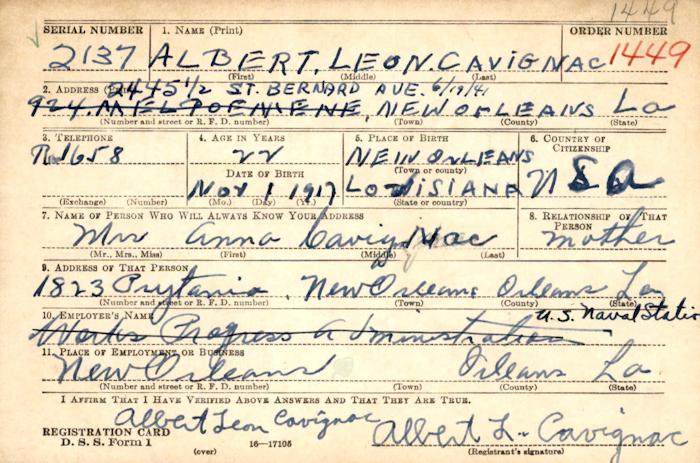 1449
SERIAL NUMBER 1. NAME (Print) ORDER NUMBER
2137 ALBERT. LEON. CAVIGNAC 1449
(First) (Middle) (Last)
2. ADDRESS (Print) 2445 1/2 ST. BERNARD AVE. 6/19/41
924. MELPOEMENE, NEW ORLEANS La
(Number and street or R. F. D. number) (Town) (County) (State)
3. TELEPHONE 4. AGE IN YEARS 5. PLACE OF BIRTH 6. COUNTRY OF CITIZENSHIP
1658 22 NEW ORLEANS
DATE OF BIRTH (Town or county)
Nov 1 1917 LOUISIANA USA
(Exchange) (Number) (Mo.) (Day) (Yr.) (State or country)
7. NAME OF PERSON WHO WILL ALWAYS KNOW YOUR ADDRESS 8. RELATIONSHIP OF THAT PERSON
Mrs Anna Cavignac mother
(Mr., Mrs., Miss) (First) (Middle) (Last)
9. ADDRESS OF THAT PERSON
1823 Prytania, New Orleans Orleans La
(Number and street or R. F. D. number) (Town) (County) (State)
10. EMPLOYER'S NAME U.S. Naval Statio
Works Progress Administration
11. PLACE OF EMPLOYMENT OR BUSINESS
New Orleans Orleans La
(Number and street or R. F. D. number) (Town) (County) (State)
I AFFIRM THAT I HAVE VERIFIED ABOVE ANSWERS AND THAT THEY ARE TRUE.
Albert Leon Cavignac
REGISTRATION CARD Albert L. Cavignac
D. S. S. Form 1 (over) 16—17105 (Registrant's signature)